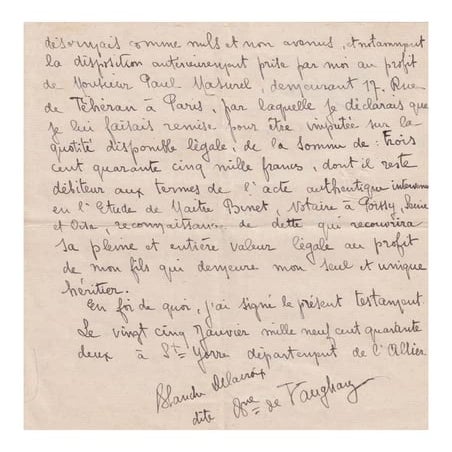 désormais comme nuls et non avenus, et notamment
la disposition antérieurement prise par moi au profit
de Monsieur Paul Masurel, demeurant 17, Rue
de Téhéran à Paris, par laquelle je déclarais que
je lui faisais remise pour être imputée sur la
quotité disponible légale, de la somme de: Trois
cent quarante cinq mille francs, dont il reste
débiteur aux termes de l'acte authentique intervenu
en l'Etude de Maitre Binet, Notaire à Poissy, Seine
et Oise, reconnaissance de dette qui recouvrira
sa pleine et entière valeur légale au profit
de mon fils qui demeure mon seul et unique
héritier.
En foi de quoi, j'ai signé le présent testament
Le vingt cinq Janvier mille neuf cent quarante
deux à St Yorre département de l'Allier
Blanche Delacroix
dite Bne de Vaughan